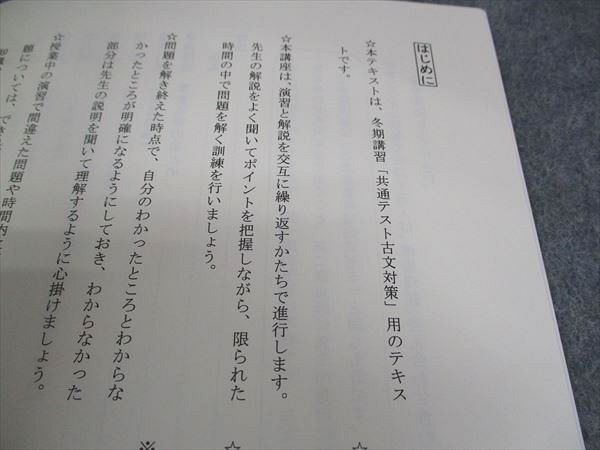 はじめに
☆本テキストは、冬期講習「共通テスト古文対策」用のテキス
トです。
☆本講座は、演習と解説を交互に繰り返すかたちで進行します。
先生の解説をよく聞いてポイントを把握しながら、限られた
時間の中で問題を解く訓練を行いましょう。
☆問題を解き終えた時点で、自分のわかったところとわからな
かったところが明確になるようにしておき、わからなかった
部分は先生の説明を聞いて理解するように心掛けましょう。
☆授業中の演習で間違えた問題や時間内に
題については、でき
☆
☆
※